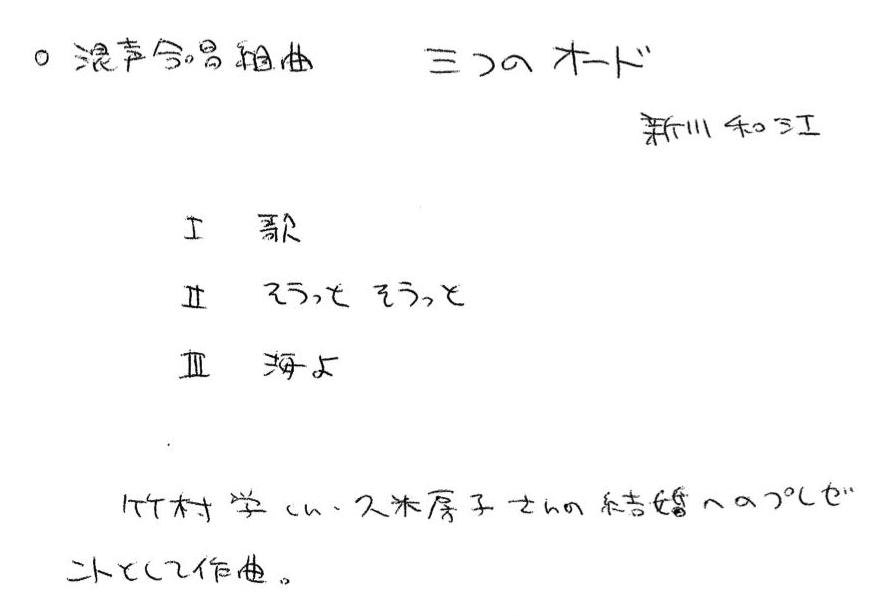 ○ 混声合唱組曲　三つのオード
新川和江
Ⅰ 歌
Ⅱ そうっと そうっと
Ⅲ 海よ
竹村学くん・久米房子さんの結婚へのプレゼ
ントとして作曲。